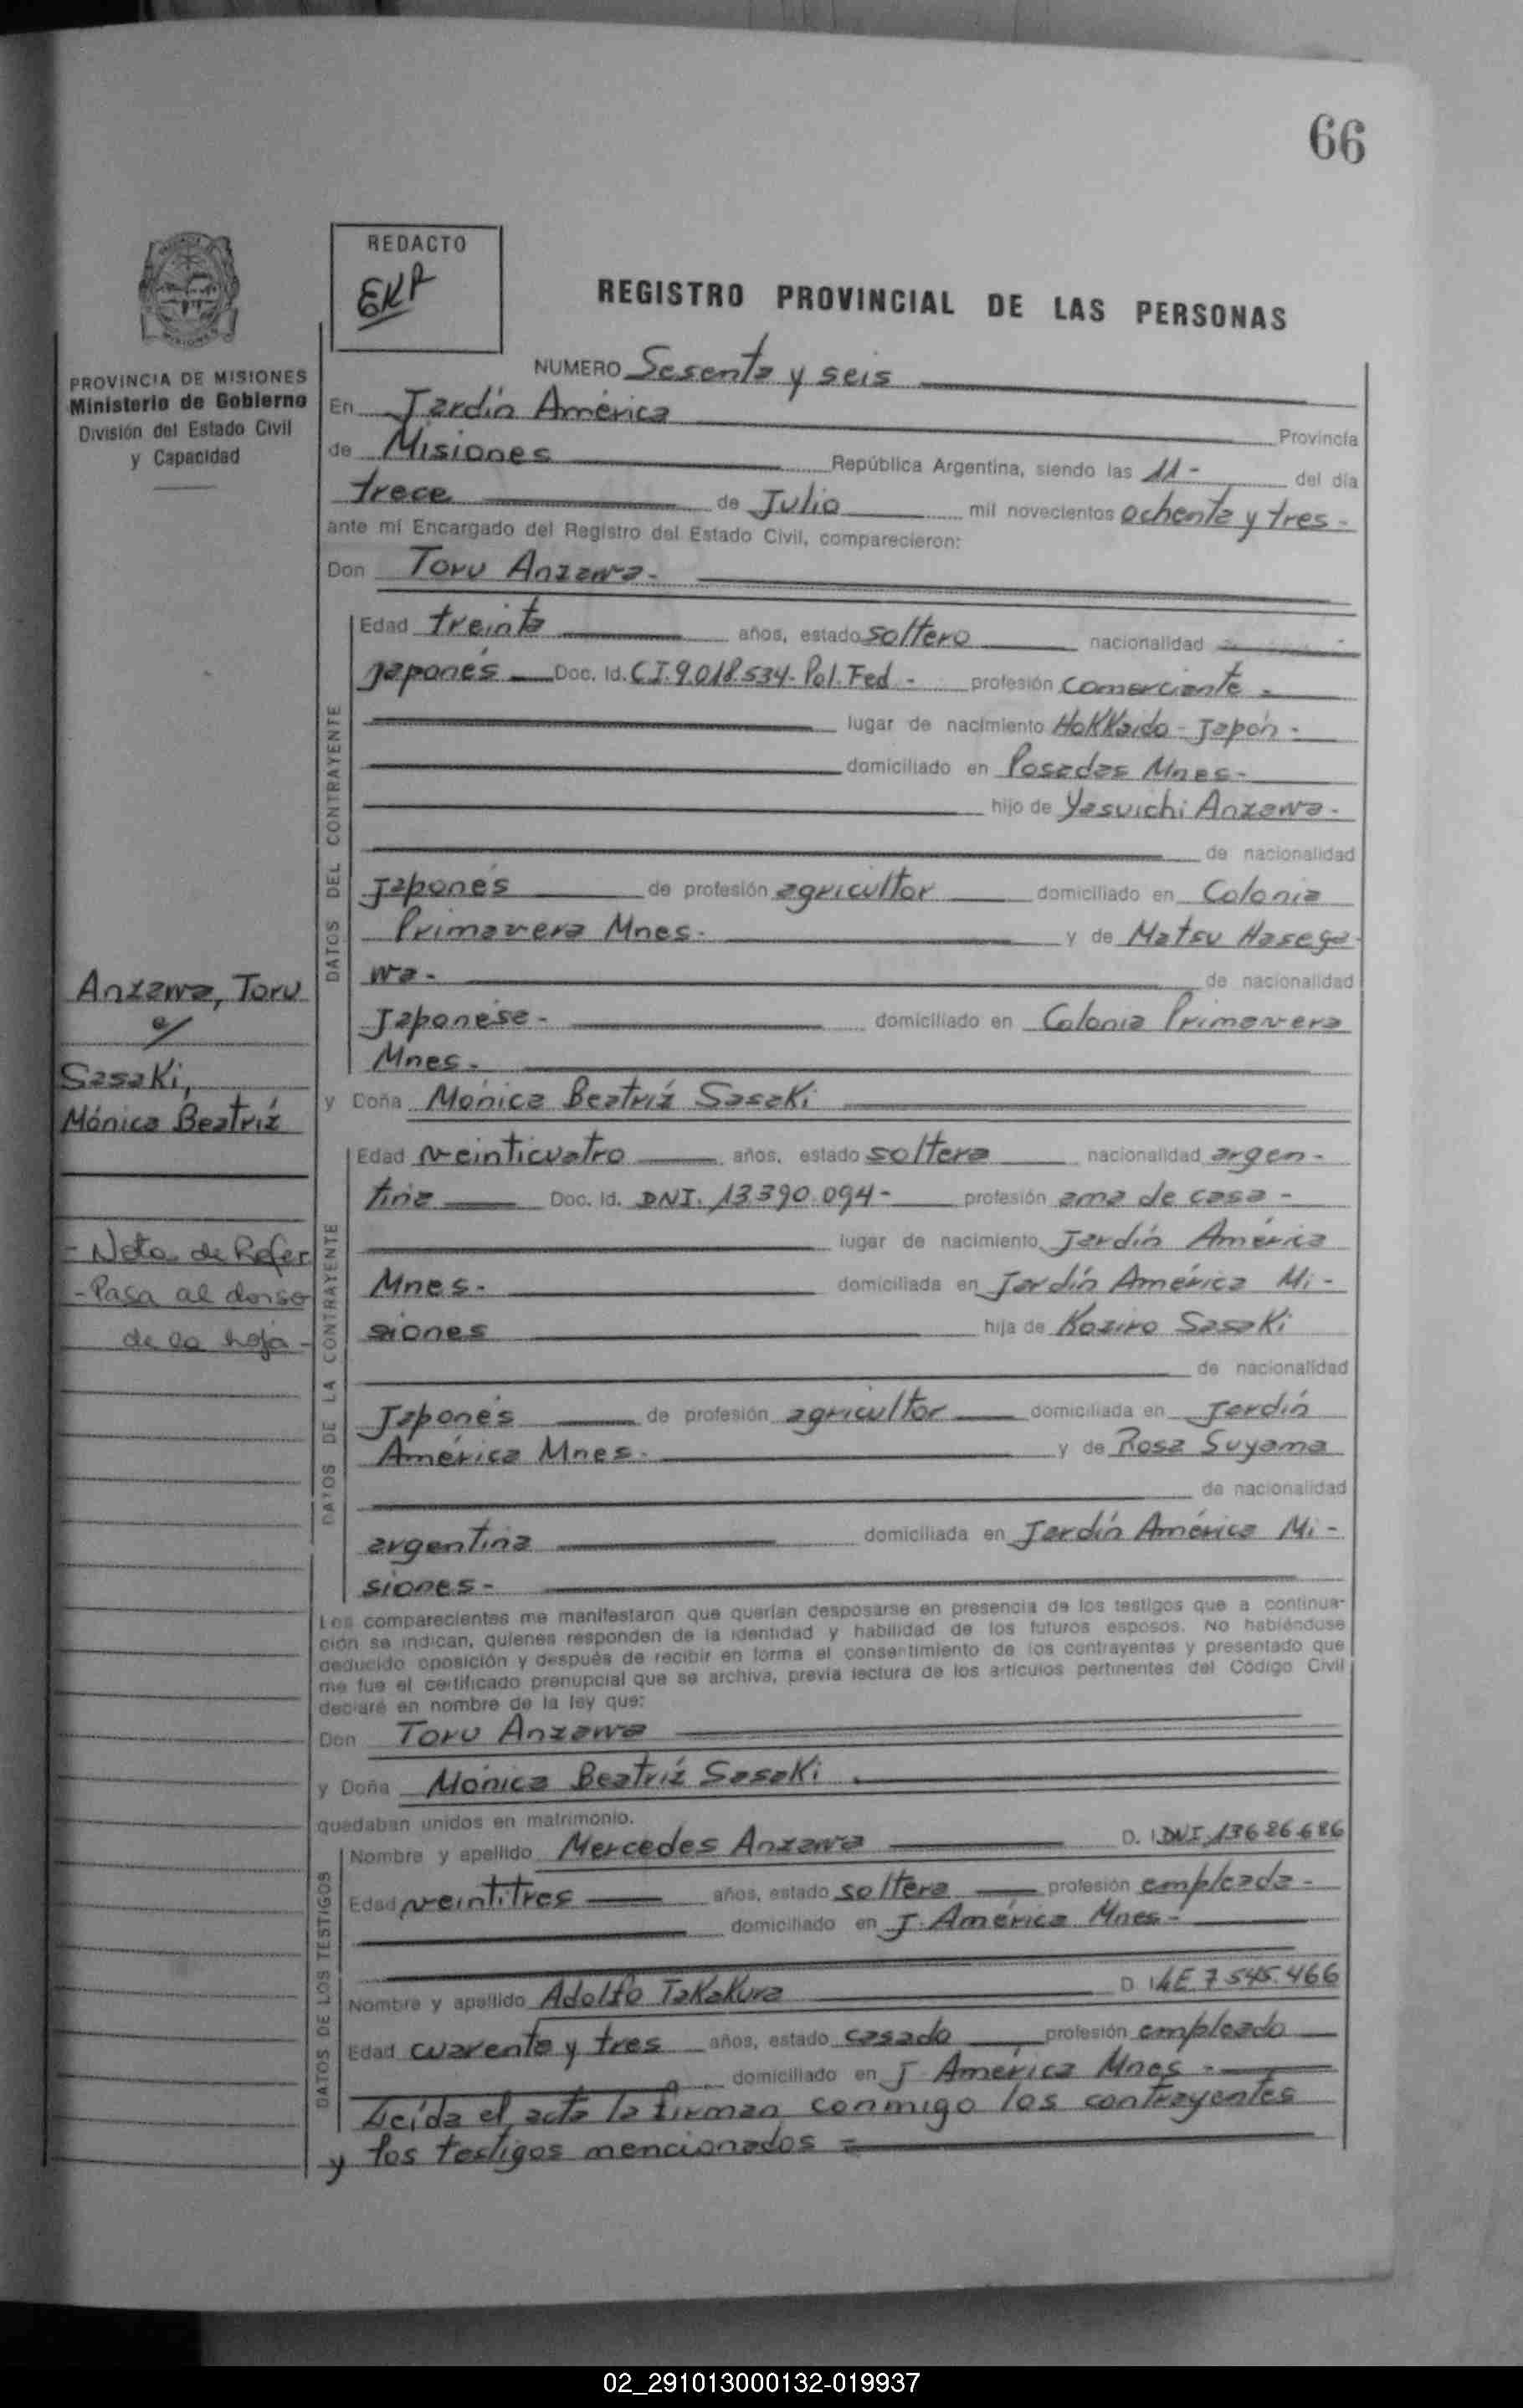 66
REDACTO
EKA
REGISTRO PROVINCIAL DE LAS PERSONAS
PROVINCIA DE MISIONES
Ministerio de Gobierno
División del Estado Civil
y Capacidad
NUMERO Sesenta y seis
En Jardín América Provincia
de Misiones República Argentina, siendo las 11- del día
trece de Julio mil novecientos ochenta y tres-
ante mí Encargado del Registro del Estado Civil, comparecieron:
Don Toru Anzawa-
DATOS DEL CONTRAYENTE
Edad treinta años, estado soltero nacionalidad
japonés Doc. Id. C.I. 9.018.534- Pol. Fed - profesión comerciante -
lugar de nacimiento HoKKaido - Japón -
domiciliado en Posadas Mnes-
hijo de Yasuichi Anzawa-
de nacionalidad
Japonés de profesión agricultor domiciliado en Colonia
Primavera Mnes- y de Matsu Hasega-
wa- de nacionalidad
Japonesa- domiciliado en Colonia Primavera
Mnes-
Anzawa, Toru
c/
SasaKi,
Mónica Beatríz
- Nota de Refer
- Pasa al dorso
de la hoja-
y Doña Mónica Beatríz SasaKi
DATOS DE LA CONTRAYENTE
Edad veinticuatro años, estado soltera nacionalidad argen-
tina Doc. Id. DNI. 13.390.094- profesión ama de casa -
lugar de nacimiento Jardín América
Mnes- domiciliada en Jardín América Mi-
siones hija de Kaziro SasaKi
de nacionalidad
Japonés de profesión agricultor domiciliada en Jardín
América Mnes- y de Rosa Suyama
de nacionalidad
argentina domiciliada en Jardín América Mi-
siones-
Los comparecientes me manifestaron que querían desposarse en presencia de los testigos que a continua-
ción se indican, quienes responden de la identidad y habilidad de los futuros esposos. No habiéndose
deducido oposición y después de recibir en forma el consentimiento de los contrayentes y presentado que
me fue el certificado prenupcial que se archiva, previa lectura de los artículos pertinentes del Código Civil
declaré en nombre de la ley que:
Don Toru Anzawa
y Doña Mónica Beatríz SasaKi
quedaban unidos en matrimonio.
DATOS DE LOS TESTIGOS
Nombre y apellido Mercedes Anzawa D. I DNI 13626686
Edad veintitres años, estado soltera profesión empleada-
domiciliado en J. América Mnes-
Nombre y apellido Adolfo TaKaKura D. I LE 7.545.466
Edad cuarenta y tres años, estado casado profesión empleado
domiciliado en J. América Mnes-
Leída el acta la firman conmigo los contrayentes
y los testigos mencionados =
02_291013000132-019937